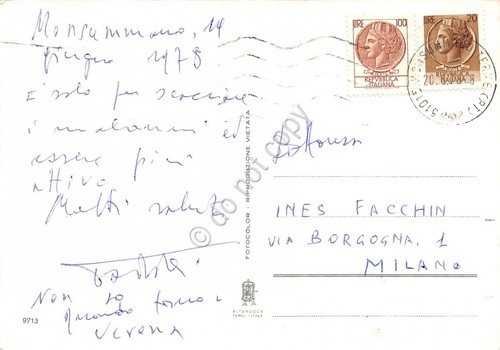 Monsummano, 14
giugno 1978
E solo per scacciare
i malanni ed
essere più
attiva
Molti saluti
Non so
quando torno a
Verona
9713
FOTOCOLOR - RIPRODUZIONE VIETATA
ALTEROCCA
TERNI-ITALY
LIRE 100
REPVBBLICA
ITALIANA
LIRE 20
REPVBBLICA
ITALIANA
51015
(PT)
Dottoressa
INES FACCHIN
VIA BORGOGNA, 1
MILANO
do not copy